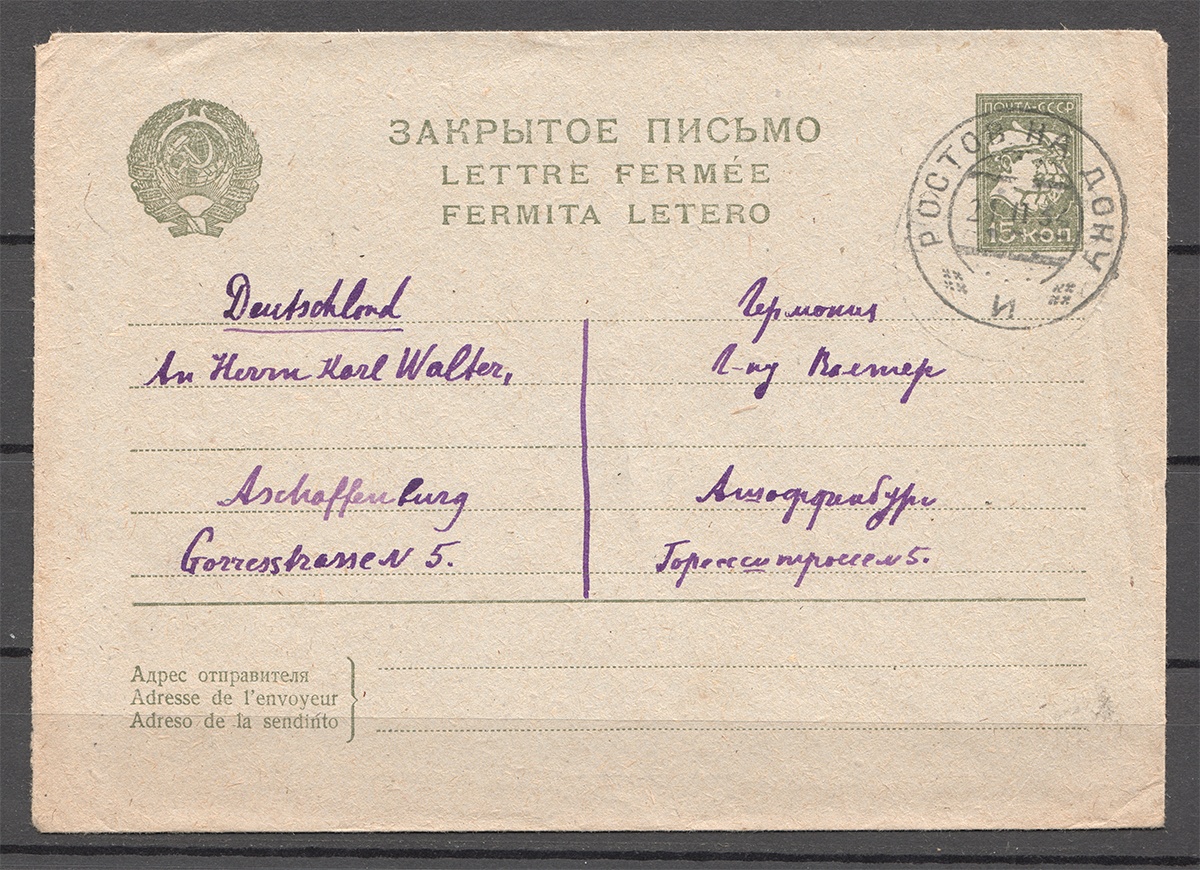 ЗАКРЫТОЕ ПИСЬМО
LETTRE FERMÉE
FERMITA LETERO
ПОЧТА-СССР
15 КОП
РОСТОВ НА ДОНУ
И
Deutschland
An Herrn Karl Walter,
Aschaffenburg
Gorresstrasse N 5.
Германия
Г-ну Валтер
Ашаффенбург
N 5.
Адрес отправителя
Adresse de l'envoyeur
Adreso de la sendińto